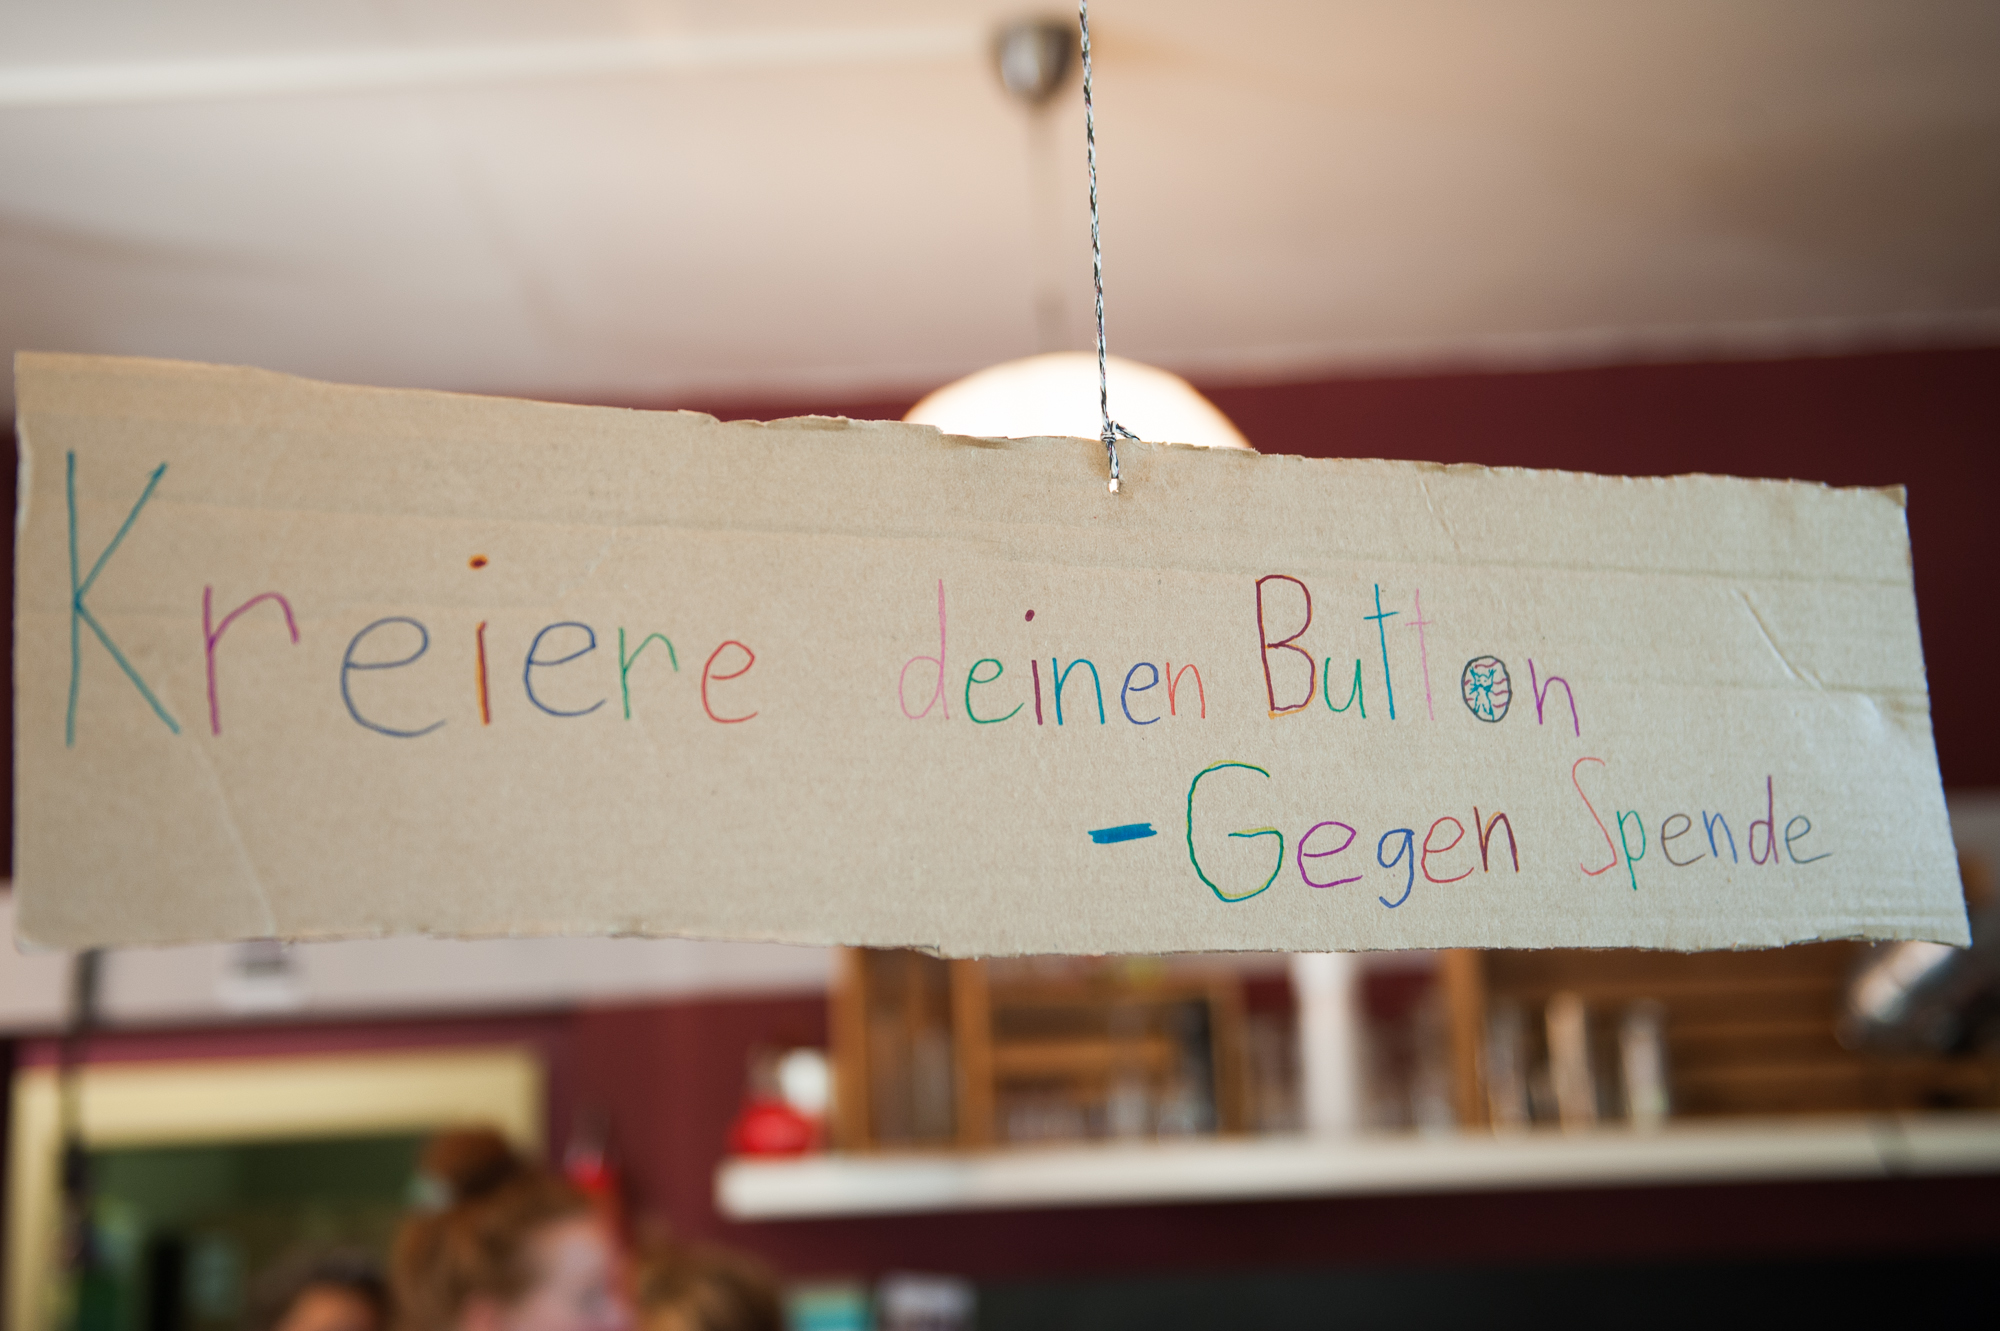 Kreiere deinen Button
- Gegen Spende